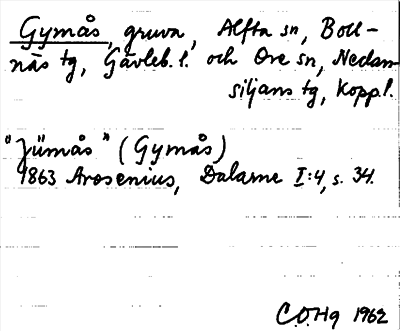 Gymås, gruva, Alfta sn, Boll-
näs tg, Gävleb. l. och Ore sn, Nedan-
siljans tg, Kopp.l.
"Jümås" (Gymås)
1863 Arosenius, Dalarne I:4, s. 34.
C.O.Hg 1962